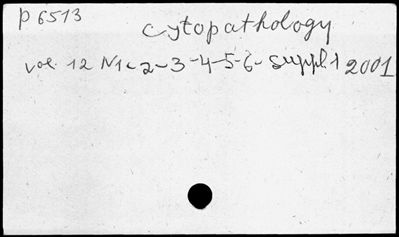 P 6513
Cytopathology
vol. 12 N1-2-3-4-5-6- suppl.1 2001